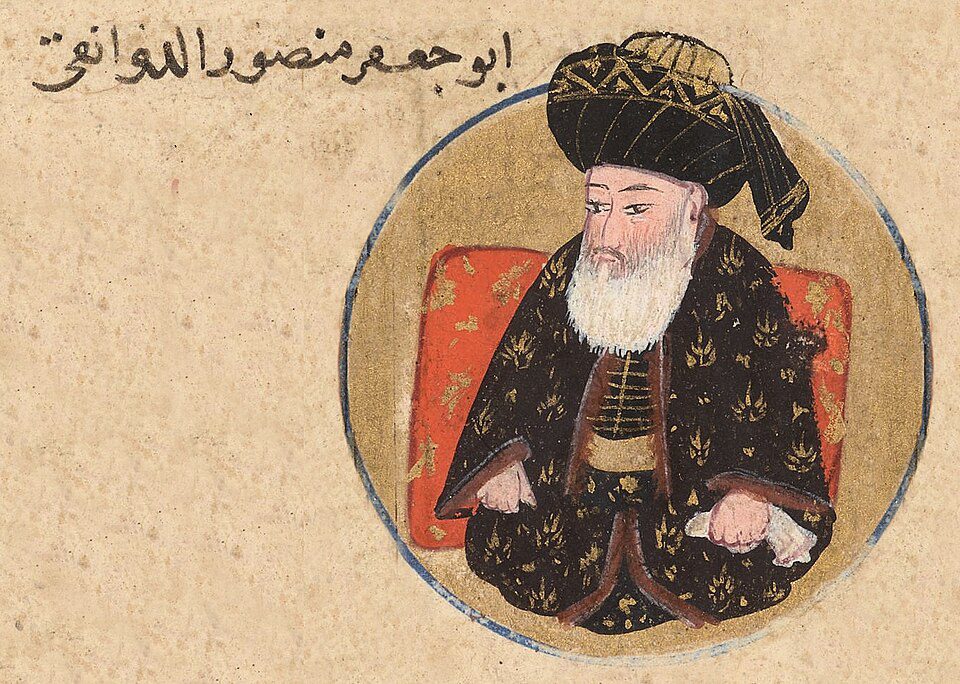 ابو جعفر منصور الدوانقی